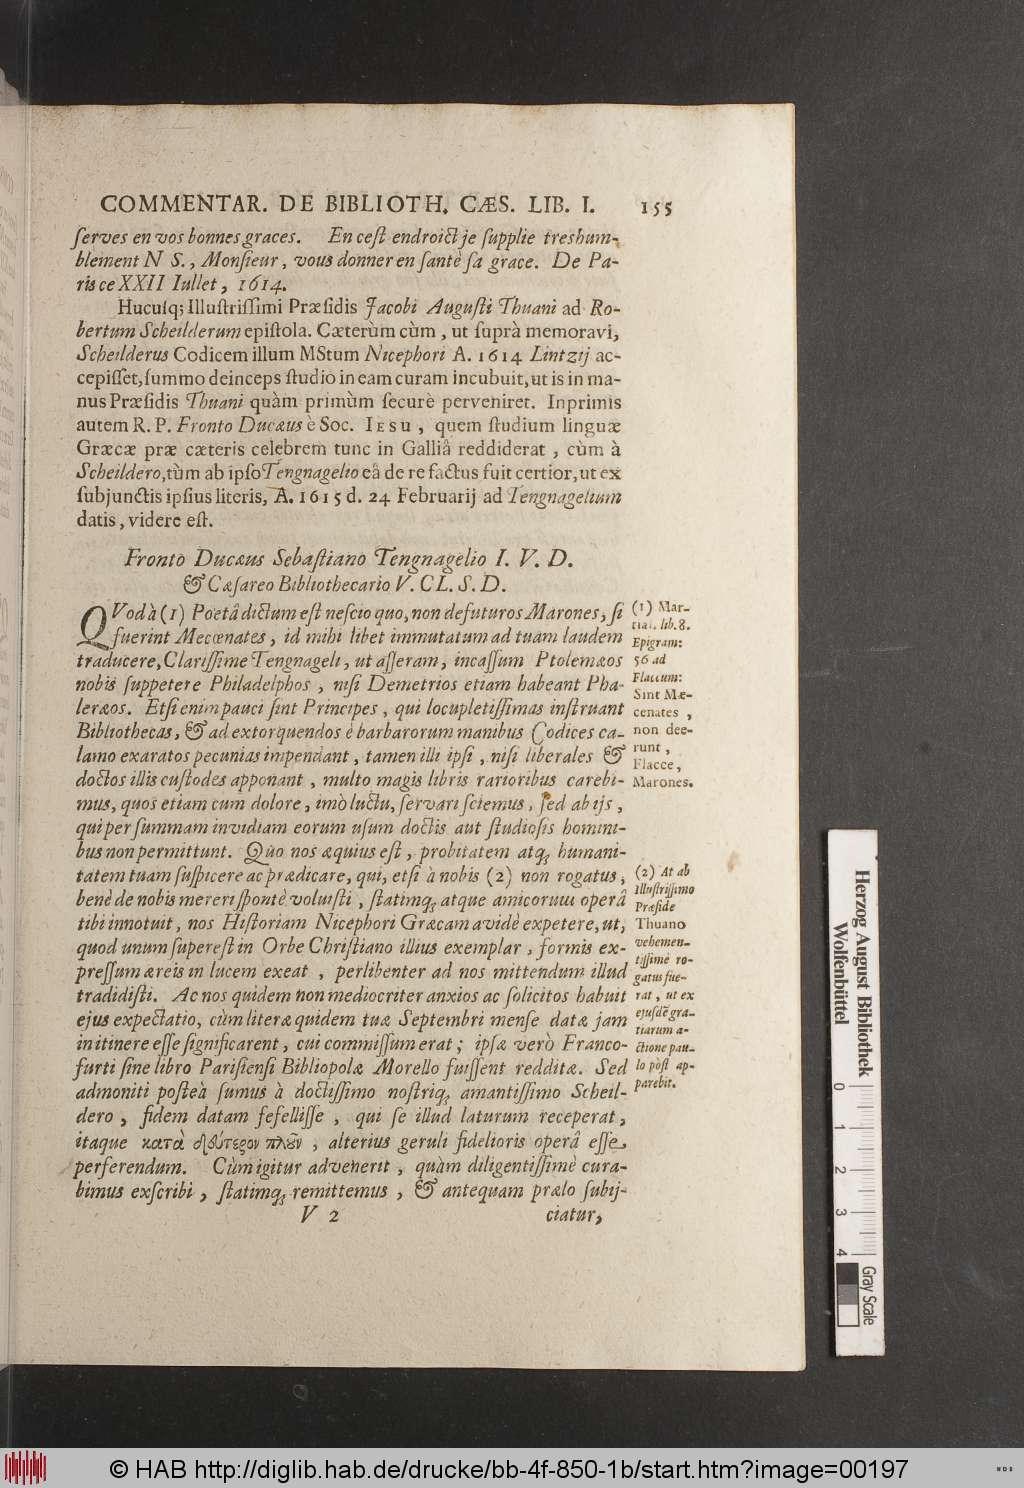 COMMENTAR. DE BIBLIOTH. CÆS. LIB. I. 155
ſerves en vos bonnes graces. En ceſt endroict je ſupplie treshum-
blement N S., Monſieur, vous donner en ſantè ſa grace. De Pa-
ris ce XXII Iullet, 1614.
Hucuſq; Illuſtriſſimi Præſidis Jacobi Auguſti Thuani ad Ro-
bertum Scheilderum epiſtola. Cæterùm cùm, ut ſuprà memoravi,
Scheilderus Codicem illum MStum Nicephori A. 1614 Lintzij ac-
cepiſſet, ſummo deinceps ſtudio in eam curam incubuit, ut is in ma-
nus Præſidis Thuani quàm primùm ſecurè perveniret. Inprimis
autem R. P. Fronto Ducæus è Soc. IESU, quem ſtudium linguæ
Græcæ præ cæteris celebrem tunc in Galliâ reddiderat, cùm à
Scheildero, tùm ab ipſo Tengnagelio eâ de re factus fuit certior, ut ex
ſubjunctis ipſius literis, A. 1615 d. 24 Februarij ad Tengnagelium
datis, videre eſt.
Fronto Ducæus Sebaſtiano Tengnagelio I. V. D.
& Cæſareo Bibliothecario V. CL. S. D.
QVod à (1) Poetâ dictum eſt neſcio quo, non defuturos Marones, ſi
fuerint Mecœnates, id mihi libet immutatum ad tuam laudem
traducere, Clariſſime Tengnageli, ut aſſeram, incaſſum Ptolemæos
nobis ſuppetere Philadelphos, niſi Demetrios etiam habeant Pha-
leræos. Etſi enim pauci ſint Principes, qui locupletiſſimas inſtruant
Bibliothecas, & ad extorquendos è barbarorum manibus Codices ca-
lamo exaratos pecunias impendant, tamen illi ipſi, niſi liberales &
doctos illis cuſtodes apponant, multo magis libris rarioribus carebi-
mus, quos etiam cum dolore, imò luctu, ſervari ſciemus, ſed ab ijs,
qui per ſummam invidiam eorum uſum doctis aut ſtudioſis homini-
bus non permittunt. Quo nos æquius eſt, probitatem atq; humani-
tatem tuam ſuſpicere ac prædicare, qui, etſi à nobis (2) non rogatus,
benè de nobis mereri ſpontè voluiſti, ſtatimq; atque amicorum operâ
tibi innotuit, nos Hiſtoriam Nicephori Græcam avidè expetere, ut,
quod unum ſupereſt in Orbe Chriſtiano illius exemplar, formis ex-
preſſum æreis in lucem exeat, perlibenter ad nos mittendum illud
tradidiſti. Ac nos quidem non mediocriter anxios ac ſolicitos habuit
ejus expectatio, cùm literæ quidem tuæ Septembri menſe datæ jam
in itinere eſſe ſignificarent, cui commiſſum erat; ipſæ verò Franco-
furti ſine libro Pariſienſi Bibliopolæ Morello fuiſſent redditæ. Sed
admoniti poſteà ſumus à doctiſſimo noſtriq; amantiſſimo Scheil-
dero, fidem datam fefelliſſe, qui ſe illud laturum receperat,
itaque κατὰ δεύτερον πλοῦν, alterius geruli fidelioris operâ eſſe
perferendum. Cùm igitur advenerit, quàm diligentiſſimè cura-
bimus exſcribi, ſtatimq; remittemus, & antequam prælo ſubij-
V 2 ciatur,
(1) Mar-
tial. lib. 8.
Epigram:
56 ad
Flaccum:
Sint Mæ-
cenates,
non dee-
runt,
Flacce,
Marones.
(2) At ab
Illuſtriſſimo
Præſide
Thuano
vehemen-
tiſſimè ro-
gatus fue-
rat, ut ex
ejuſdē gra-
tiarum a-
ctione pau-
lo pòſt ap-
parebit.
Herzog August Bibliothek
Wolfenbüttel
0 1 2 3 4
Gray Scale
© HAB http://diglib.hab.de/drucke/bb-4f-850-1b/start.htm?image=00197